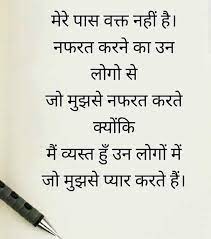 मेरे पास वक्त नहीं है।
नफरत करने का उन
लोगो से
जो मुझसे नफरत करते
क्योंकि
मैं व्यस्त हुँ उन लोगों में
जो मुझसे प्यार करते हैं।